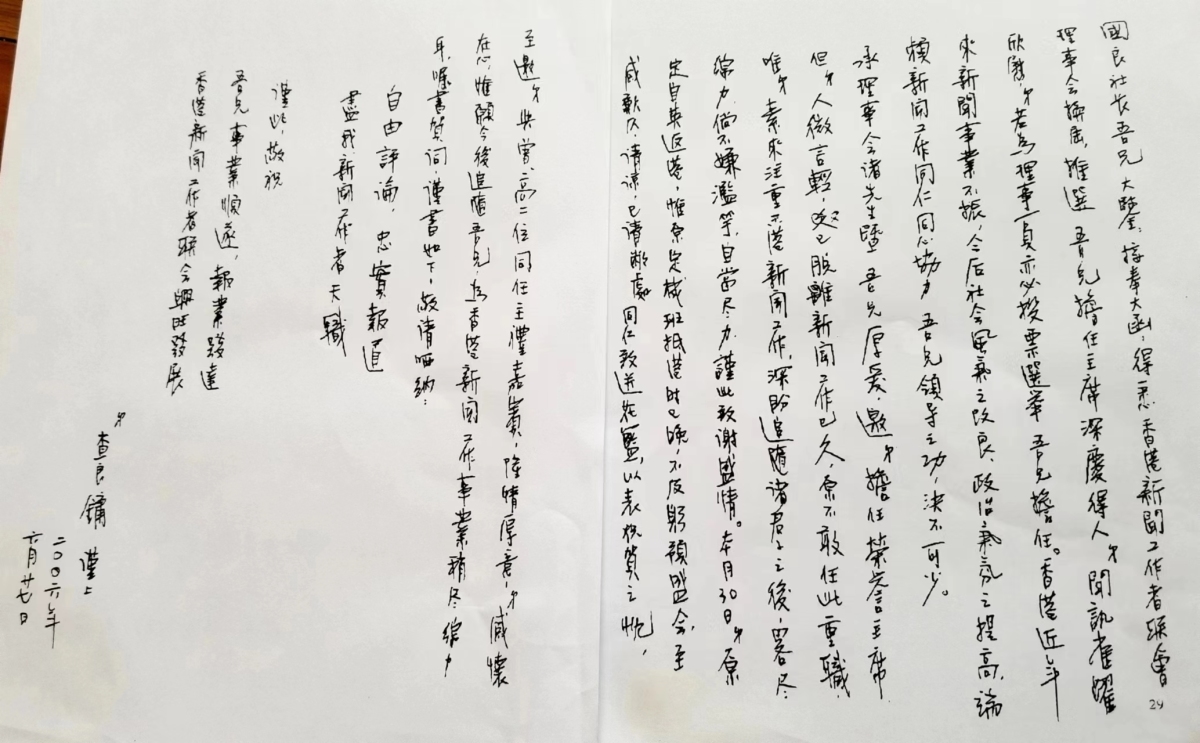 國良社长吾兄 大鑒：接奉大函，得悉香港新聞工作者联會
理事会換屆，推選 吾兄擔任主席深慶得人，弟聞訊雀躍
欣慰，弟若為理事一員亦必投票選举 吾兄擔任。香港近年
來新聞事業不振，今后社会風氣之改良，政治氣氛之提高，端
賴新聞工作同仁同心協力 吾兄領导之功，決不可少。
承理事会诸先生暨 吾兄厚爱，邀弟擔任荣誉主席
但弟人微言輕，又已脱離新聞工作已久，原不敢任此重職
唯弟素來注重本港新聞工作，深盼追隨诸君子之後，畧尽
綿力，倘不嫌濫竽，自當尽力，謹此致谢盛情。本月30日，弟原
定自英返港，惟原定航班抵港时已晚，不及躬預盛会，至
感歉仄，请谅，已请敝處同仁致送花籃，以表祝賀之忱，
至邀弟與曾、高二位同任主禮嘉賓，隆情厚意，弟感懷
在心，惟願今後追隨吾兄，為香港新聞工作事業稍尽綿力
耳，嘱書賀词，谨書如下，敬请哂納：
自由評論，忠實報道
盡我新聞工作者天職
谨此，敬祝
吾兄事業順遂，報業騰達
香港新聞工作者联会興旺發展
弟
查良鏞 謹上
二〇〇六年
六月廿七日
24